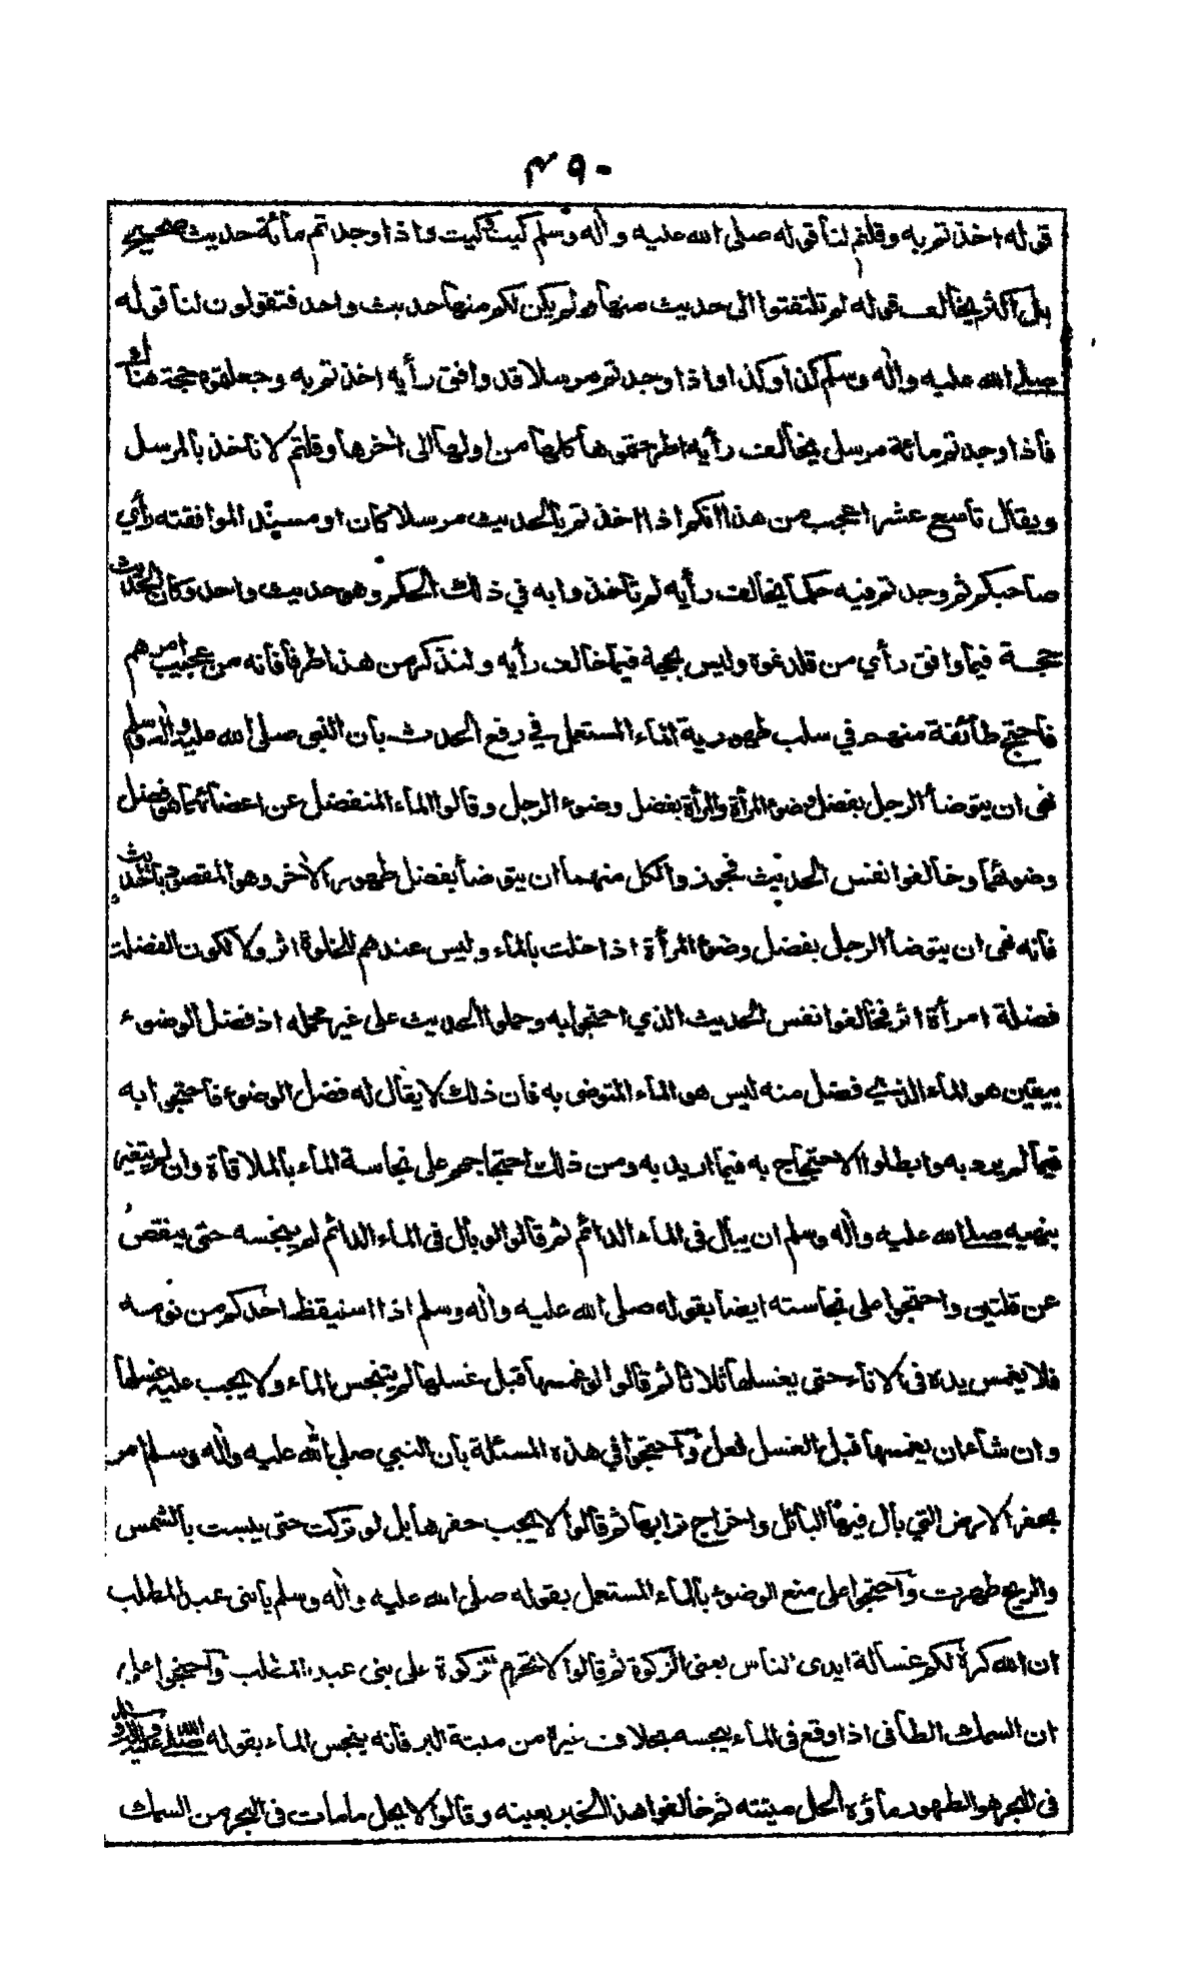 ٣٩٠
قوله اخذتم به وقلتم لنا قوله صلى الله عليه وآله وسلم كيت كيت واذا وجدتم مائة حديث صحيح
بل اكثر يخالف قوله لم تلتفتوا الى حديث منها ولم يكن لكم منها حديث واحد فتقولون لنا قوله
صلى الله عليه وآله وسلم كذا وكذا واذا وجدتم مرسلا قد وافق رأيه اخذتم به وجعلتموه حجة هناك
فاذا وجدتم مائة مرسل يخالف رأيه اطرحتموها كلها من اولها الى آخرها وقلتم لا نأخذ بالمرسل
ويقال تاسع عشر اعجب من هذا انكم اذا اخذتم بالحديث مرسلا كان او مسندا لموافقته رأي
صاحبكم ثم وجدتم فيه حكما يخالف رأيه لم تأخذوا به في ذلك الحكم وهو حديث واحد وكان الحديث
حجة فيما وافق رأي من قلدتموه وليس بحجة فيما خالف رأيه ولنذكر من هذا طرفا فانه من عجيب امرهم
فاحتج طائفة منهم في سلب طهورية الماء المستعمل في رفع الحدث بان النبي صلى الله عليه وآله وسلم
نهى ان يتوضأ الرجل بفضل وضوء المرأة والمرأة بفضل وضوء الرجل وقالوا الماء المنفصل عن اعضائهما هو فضل
وضوئهما وخالفوا نفس الحديث فجوزوا لكل منهما ان يتوضأ بفضل طهور الآخر وهو المقصود بالحديث
فانه نهى ان يتوضأ الرجل بفضل وضوء المرأة اذا خلت بالماء وليس عندهم للخلوة اثر ولا لكون الفضلة
فضلة امرأة اثر فخالفوا نفس الحديث الذي احتجوا به وحملوا الحديث على غير محمله اذ فضل الوضوء
بيقين هو الماء الذي فضل منه ليس هو الماء المتوضى به فان ذلك لا يقال له فضل الوضوء فاحتجوا به
فيما لم يرد به وابطلوا الاحتجاج به فيما اريد به ومن ذلك احتجاجهم على نجاسة الماء بالملاقاة وان لم يتغير
بنهيه صلى الله عليه وآله وسلم ان يبال في الماء الدائم ثم قالوا لو بال في الماء الدائم لم ينجسه حتى ينقص
عن قلتين واحتجوا على نجاسته ايضا بقوله صلى الله عليه وآله وسلم اذا استيقظ احدكم من نومه
فلا يغمس يده في الاناء حتى يغسلها ثلاثا ثم قالوا لو غمسها قبل غسلها لم يتنجس الماء ولا يجب عليه غسلها
وان شاء ان يغمسها قبل الغسل فعل واحتجوا في هذه المسئلة بان النبي صلى الله عليه وآله وسلم امر
بحفر الارض التي بال فيها البائل واخراج ترابها ثم قالوا لا يجب حفرها بل لو تركت حتى يبست بالشمس
والريح طهرت واحتجوا على منع الوضوء بالماء المستعمل بقوله صلى الله عليه وآله وسلم يا بنى عبد المطلب
ان الله كره لكم غسالة ايدى الناس يعنى الزكوة ثم قالوا لا تحرم الزكوة على بنى عبد المطلب واحتجوا على
ان السمك الطافى اذا وقع فى الماء لا ينجسه بخلاف غيره من ميتة البر فانه ينجس الماء بقوله صلى الله عليه وآله وسلم
فى البحر هو الطهور ماؤه الحل ميتته ثم خالفوا هذا الخبر بعينه وقالوا لا يحل ما مات فى البحر من السمك